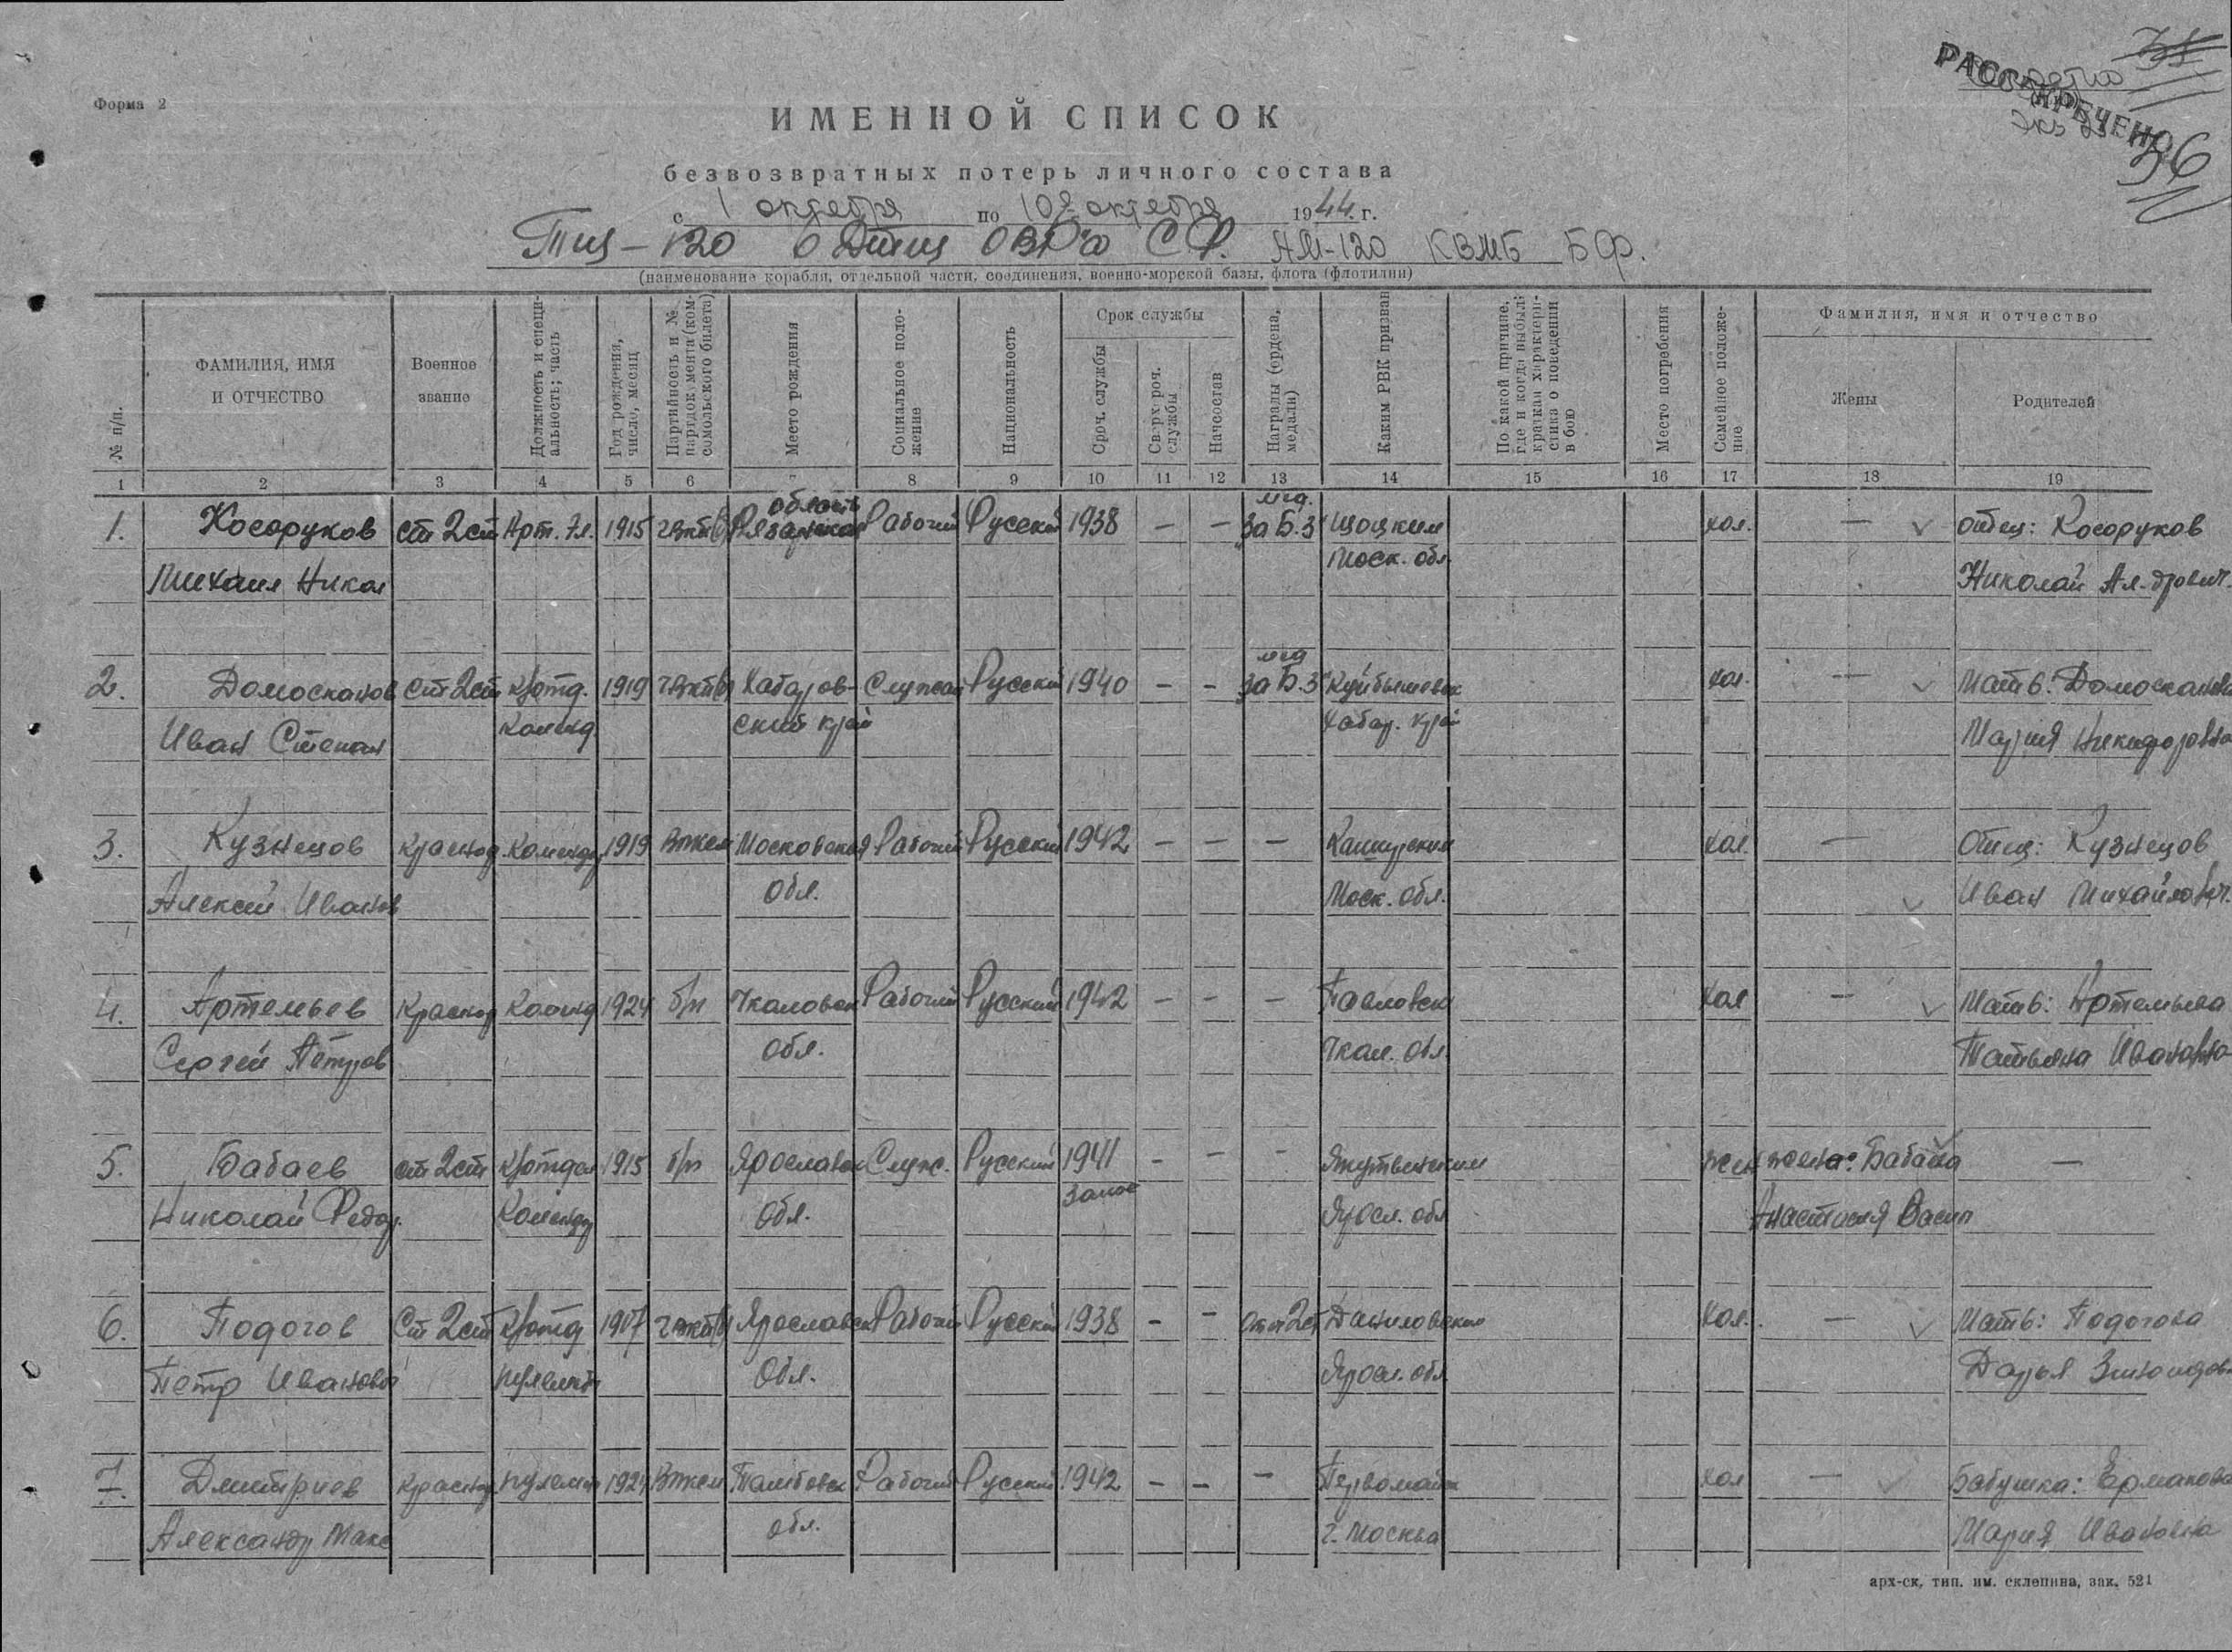 Форма 2
РАССЕКРЕЧЕНО
Экз
36
ИМЕННОЙ СПИСОК
безвозвратных потерь личного состава
с 1 октября по 10 октября 1944 г.
Тщ-120 6 Дтщ ОВР'а СФ. АМ-120 КВМБ БФ.
(наименование корабля, отдельной части, соединения, военно-морской базы, флота (флотилии)
№ п/п.
ФАМИЛИЯ, ИМЯ И ОТЧЕСТВО
Военное звание
Должность и специальность; часть
Год рождения, число, месяц
Партийность и № партдокумента (комсомольского билета)
Место рождения
Социальное положение
Национальность
Срок службы
Сроч. службы
Сверхсроч. службы
Начсостав
Награды (ордена, медали)
Каким РВК призван
По какой причине, где и когда выбыл; краткая характеристика о поведении в бою
Место погребения
Семейное положение
Фамилия, имя и отчество
Жены
Родителей
1 2 3 4 5 6 7 8 9 10 11 12 13 14 15 16 17 18 19
область мед.
1. Косоруков ст 2 ст Арт. Эл. 1915 чвкп(б) Рязанская Рабочий Русский 1938 — — За Б.З. Шацким хол. — отец: Косоруков
Михаил Никол Моск. обл. Николай Ал-дрович
мед
2. Домосканов ст 2 ст к/отд. 1919 чвкп(б) Хабаров- Служащ Русский 1940 — — За Б.З. Куйбышевск хол. — Мать: Домосканова
Иван Степан коменд ский край Хабар. край Мария Никифоровна
3. Кузнецов краеноф. Коменд 1919 Влксм Московская Рабочий Русский 1942 — — — Каширским хол. — Отец: Кузнецов
Алексей Иванов обл. Моск. обл. Иван Михайлович
4. Артемьев Красноф Коменд 1924 б/п Чкаловск Рабочий Русский 1942 — — — Павловск хол — Мать: Артемьева
Сергей Петров обл. Чкал. обл. Татьяна Ивановна
5. Бабаев ст 2 ст к/отдел 1915 б/п Ярославск Служ. Русский 1941 — — — жен жена: Бабаева —
Николай Федор. Коменд обл. запас Яросл. обл Анастасия Васил
6. Подогов Ст 2 ст к/отд 1907 чвкп(б) Ярославск Рабочий Русский 1938 — — От 2 ст Даниловским хол. — Мать: Подогова
Петр Иванович пулемет обл. Яросл. обл Дарья
7. Дмитриев красноф пулемет 1924 Влксм Тамбовск Рабочий Русский 1942 — — — Первомайск хол — Бабушка: Ермакова
Александр Макс обл. г. Москва Мария Ивановна
арх-ск, тип. им. склепина, зак. 521